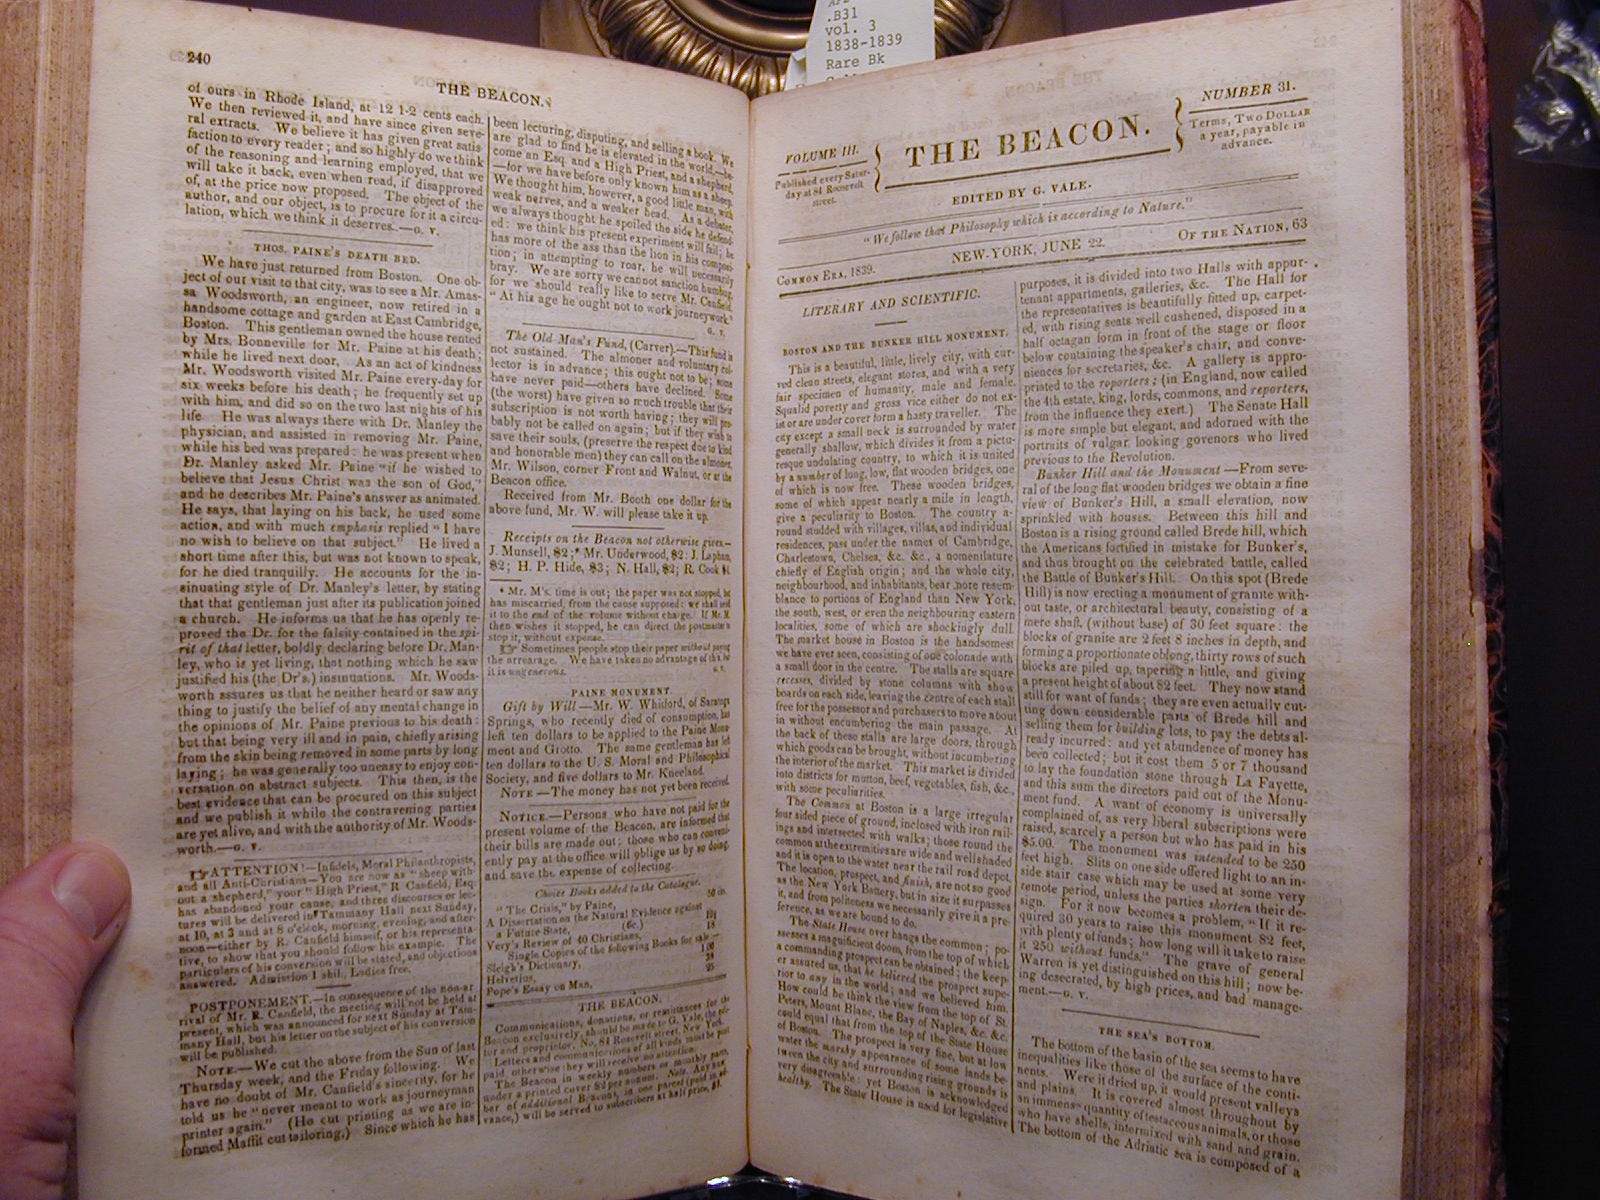 .B31
vol. 3
1838-1839
Rare Bk
240
THE BEACON.
of ours in Rhode Island, at 12 1-2 cents each.
We then reviewed it, and have since given seve-
ral extracts. We believe it has given great satis-
faction to every reader; and so highly do we think
of the reasoning and learning employed, that we
will take it back, even when read, if disapproved
of, at the price now proposed. The object of the
author, and our object, is to procure for it a circu-
lation, which we think it deserves.—G. V.
THOS. PAINE'S DEATH BED.
We have just returned from Boston. One ob-
ject of our visit to that city, was to see a Mr. Amas-
sa Woodsworth, an engineer, now retired in a
handsome cottage and garden at East Cambridge,
Boston. This gentleman owned the house rented
by Mrs. Bonneville for Mr. Paine at his death;
while he lived next door, As an act of kindness
Mr. Woodsworth visited Mr. Paine every-day for
six weeks before his death; he frequently set up
with him, and did so on the two last nights of his
life He was always there with Dr. Manley the
physician, and assisted in removing Mr. Paine,
while his bed was prepared: he was present when
Dr. Manley asked Mr. Paine "if he wished to
believe that Jesus Christ was the son of God,"
and he describes Mr. Paine's answer as animated.
He says, that laying on his back, he used some
action, and with much emphasis replied "I have
no wish to believe on that subject." He lived a
short time after this, but was not known to speak,
for he died tranquilly. He accounts for the in-
sinuating style of Dr. Manley's letter, by stating
that that gentleman just after its publication joined
a church. He informs us that he has openly re-
proved the Dr. for the falsity contained in the spi-
rit of that letter, boldly declaring before Dr. Man-
ley, who is yet living, that nothing which he saw
justified his (the Dr's.) insinuations. Mr. Woods-
worth assures us that he neither heard or saw any
thing to justify the belief of any mental change in
the opinions of Mr. Paine previous to his death:
but that being very ill and in pain, chiefly arising
from the skin being removed in some parts by long
laying; he was generally too uneasy to enjoy con-
versation on abstract subjects. This then, is the
best evidence that can be procured on this subject
and we publish it while the contravening parties
are yet alive, and with the authority of Mr. Woods-
worth.—G. V.
☞ATTENTION!—Infidels, Moral Philanthropists,
and all Anti-Christians—You are now as "sheep with-
out a shepherd," your "High Priest," R Canfield, Esq.
has abandoned your cause, and three discourses or lec-
tures will be delivered in Tammany Hall next Sunday,
at 10, at 3 and at 8 o'clock, morning, evening, and after-
noon—either by R. Canfield himself, or his representa-
tive, to show that you should follow his example. The
particulars of his conversion will be stated, and objections
answered. Admission 1 shil. Ladies free.
POSTPONEMENT.—In consequence of the non-ar-
rival of Mr. R. Canfield, the meeting will not be held at
present, which was announced for next Sunday at Tam-
many Hall, but his letter on the subject of his conversion
will be published.
NOTE.—We cut the above from the Sun of last
Thursday week, and the Friday following. We
have no doubt of Mr. Canfield's sincerity, for he
told us he "never meant to work as journeyman
printer again." (He cut printing as we are in-
formed Maffit cut tailoring,) Since which he has
been lecturing, disputing, and selling a book. We
are glad to find he is elevated in the world,—be-
come an Esq. and a High Priest, and a shepherd,
—for we have before only known him as a sheep.
We thought him, however, a good little man, with
weak nerves, and a weaker head. As a debater,
we always thought he spoiled the side he defend-
ed: we think his present experiment will fail; he
has more of the ass than the lion in his composi-
tion; in attempting to roar, he will necessarily
bray. We are sorry we cannot sanction humbug,
for we should really like to serve Mr. Canfield.
"At his age he ought not to work journeywork"
G. V.
The Old Man's Fund, (Carver).—This fund is
not sustained. The almoner and voluntary col-
lector is in advance; this ought not to be; some
have never paid—others have declined. Some
(the worst) have given so much trouble that their
subscription is not worth having; they will pro-
bably not be called on again; but if they wish to
save their souls, (preserve the respect due to kind
and honorable men) they can call on the almoner,
Mr. Wilson, corner Front and Walnut, or at the
Beacon office.
Received from Mr. Booth one dollar for the
above fund, Mr. W. will please take it up.
Receipts on the Beacon not otherwise given—
J. Munsell, $2;* Mr. Underwood, $2: J. Lapham,
$2; H. P. Hide, $3; N. Hall, $2; R. Cook $1.
* Mr. M's. time is out; the paper was not stopped, he
has miscarried, from the cause supposed: we shall send
it to the end of the volume without charge. If Mr. M.
then wishes it stopped, he can direct the postmaster to
stop it, without expense.
☞ Sometimes people stop their paper without paying
the arrearage. We have taken no advantage of this, but
it is ungenerous. G. V.
PAINE MONUMENT.
Gift by Will—Mr. W. Whitford, of Saratoga
Springs, who recently died of consumption, has
left ten dollars to be applied to the Paine Monu-
ment and Grotto. The same gentleman has left
ten dollars to the U. S. Moral and Philosophical
Society, and five dollars to Mr. Kneeland.
NOTE—The money has not yet been received.
NOTICE.—Persons who have not paid for the
present volume of the Beacon, are informed that
their bills are made out: those who can conveni-
ently pay at the office will oblige us by so doing,
and save the expense of collecting.
Choice Books added to the Catalogue.
"The Crisis," by Paine, 50 cts.
A Dissertation on the Natural Evidence against
a Future State, (6c.)
Very's Review of 40 Christians, 18
Single Copies of the following Books for sale—
Sleigh's Dictionary, 1.00
Helvetius,
Pope's Essay on Man, 25
THE BEACON.
Communications, donations, or remittances for the
Beacon exclusively, should be made to G. Vale, the edi-
tor and proprietor, No. 81 Roosevelt street, New York.
Letters and communications of all kinds must be post
paid, otherwise they will receive no attention.
The Beacon in weekly numbers or monthly parts,
under a printed cover $2 per annum. Note. Any num-
ber of additional Beacons, in one parcel (paid in ad-
vance,) will be served to subscribers at half price, $1.
VOLUME III.
Published every Satur-
day at 81 Roosevelt
street.
THE BEACON.
NUMBER 31.
Terms, TWO DOLLAR
a year, payable in
advance.
EDITED BY G. VALE.
"We follow that Philosophy which is according to Nature."
COMMON ERA, 1839.
NEW-YORK, JUNE 22.
OF THE NATION, 63
LITERARY AND SCIENTIFIC.
BOSTON AND THE BUNKER HILL MONUMENT.
This is a beautiful, little, lively city, with cur-
ved clean streets, elegant stores, and with a very
fair specimen of humanity, male and female.
Squalid poverty and gross vice either do not ex-
ist or are under cover form a hasty traveller. The
city except a small neck is surrounded by water
generally shallow, which divides it from a pictu-
resque undulating country, to which it is united
by a number of long, low, flat wooden bridges, one
of which is now free. These wooden bridges,
some of which appear nearly a mile in length,
give a peculiarity to Boston. The country a-
round studded with villages, villas, and individual
residences, pass under the names of Cambridge,
Charlestown, Chelsea, &c. &c., a nomenclature
chiefly of English origin; and the whole city,
neighbourhood, and inhabitants, bear more resem-
blance to portions of England than New York,
the south, west, or even the neighbouring eastern
localities, some of which are shockingly dull.
The market house in Boston is the handsomest
we have ever seen, consisting of one colonade with
a small door in the centre. The stalls are square
recesses, divided by stone columns with show
boards on each side, leaving the centre of each stall
free for the possessor and purchasers to move about
in without encumbering the main passage. At
the back of these stalls are large doors, through
which goods can be brought, without incumbering
the interior of the market. This market is divided
into districts for mutton, beef, vegetables, fish, &c.,
with some peculiarities.
The Common at Boston is a large irregular
four sided piece of ground, inclosed with iron rail-
ings and intersected with walks; those round the
common at the extremities are wide and well shaded
and it is open to the water near the rail road depot.
The location, prospect, and finish, are not so good
as the New York Battery, but in size it surpasses
it, and from politeness we necessarily give it a pre-
ference, as we are bound to do.
The State House over hangs the common; po-
ssesses a magnificent doom, from the top of which
a commanding prospect can be obtained; the keep-
er assured us, that he believed the prospect supe-
rior to any in the world; and we believed him.
How could he think the view from the top of St.
Peters, Mount Blanc, the Bay of Naples, &c. &c.
could equal that from the top of the State House
of Boston. The prospect is very fine, but at low
water the marshy appearance of some lands be-
tween the city and surrounding rising grounds is
very disagreeable: yet Boston is acknowledged
healthy. The State House is used for legislative
purposes, it is divided into two Halls with appur-
tenant appartments, galleries, &c. The Hall for
the representatives is beautifully fitted up, carpet-
ed, with rising seats well cushened, disposed in a
half octagan form in front of the stage or floor
below containing the speaker's chair, and conve-
niences for secretaries, &c. A gallery is appro-
printed to the reporters; (in England, now called
the 4th estate, king, lords, commons, and reporters,
from the influence they exert.) The Senate Hall
is more simple but elegant, and adorned with the
portraits of vulgar looking govenors who lived
previous to the Revolution.
Bunker Hill and the Monument—From seve-
ral of the long flat wooden bridges we obtain a fine
view of Bunker's Hill, a small elevation, now
sprinkled with houses. Between this hill and
Boston is a rising ground called Brede hill, which
the Americans fortified in mistake for Bunker's,
and thus brought on the celebrated battle, called
the Battle of Bunker's Hill. On this spot (Brede
Hill) is now erecting a monument of granite with-
out taste, or architectural beauty, consisting of a
mere shaft, (without base) of 30 feet square: the
blocks of granite are 2 feet 8 inches in depth, and
forming a proportionate oblong, thirty rows of such
blocks are piled up, tapering a little, and giving
a present height of about 82 feet. They now stand
still for want of funds; they are even actually cut-
ting down considerable parts of Brede hill and
selling them for building lots, to pay the debts al-
ready incurred: and yet abundence of money has
been collected; but it cost them 5 or 7 thousand
to lay the foundation stone through La Fayette,
and this sum the directors paid out of the Monu-
ment fund. A want of economy is universally
complained of, as very liberal subscriptions were
raised, scarcely a person but who has paid in his
$5.00. The monument was intended to be 250
feet high. Slits on one side offered light to an in-
side stair case which may be used at some very
remote period, unless the parties shorten their de-
sign. For it now becomes a problem, "If it re-
quired 30 years to raise this monument 82 feet,
with plenty of funds; how long will it take to raise
it 250 without funds." The grave of general
Warren is yet distinguished on this hill; now be-
ing desecrated, by high prices, and bad manage-
ment.—G. V.
THE SEA'S BOTTOM.
The bottom of the basin of the sea seems to have
inequalities like those of the surface of the conti-
nents. Were it dried up, it would present valleys
and plains. It is covered almost throughout by
an immense quantity of testaceous animals, or those
who have shells, intermixed with sand and grain.
The bottom of the Adriatic sea is composed of a